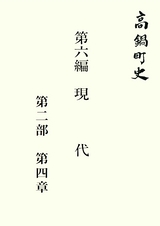 高鍋町史
第六編 現代
第二部 第四章